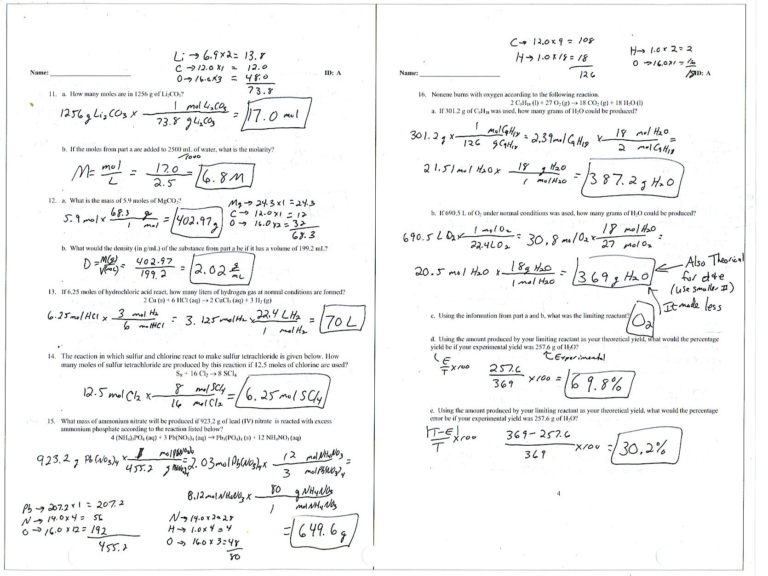 Li → 6.9x2 = 13.8
C → 12.0x1 = 12.0
O → 16.0x3 = 48.0
73.8
Name: ID: A
11. a. How many moles are in 1256 g of Li₂CO₃?
1256 g Li₂CO₃ x 1 mol Li₂CO₃ / 73.8 g Li₂CO₃ = 17.0 mol
b. If the moles from part a are added to 2500 mL of water, what is the molarity?
M = mol / L = 17.0 / 2.5 = 6.8 M
12. a. What is the mass of 5.9 moles of MgCO₃?
Mg → 24.3x1 = 24.3
C → 12.0x1 = 12
5.9 mol x 68.3 g / 1 mol = 402.97g
O → 16.0x2 = 32
68.3
b. What would the density (in g/mL) of the substance from part a be if it has a volume of 199.2 mL?
D = M(g) / V(mL) = 402.97 / 199.2 = 2.02 g/mL
13. If 6.25 moles of hydrochloric acid react, how many liters of hydrogen gas at normal conditions are formed?
2 Cu (s) + 6 HCl (aq) → 2 CuCl₃ (aq) + 3 H₂ (g)
6.25 mol HCl x 3 mol H₂ / 6 mol HCl = 3.125 mol H₂ x 22.4 L H₂ / 1 mol H₂ = 70 L
14. The reaction in which sulfur and chlorine react to make sulfur tetrachloride is given below. How
many moles of sulfur tetrachloride are produced by this reaction if 12.5 moles of chlorine are used?
S₈ + 16 Cl₂ → 8 SCl₄
12.5 mol Cl₂ x 8 mol SCl₄ / 16 mol Cl₂ = 6.25 mol SCl₄
15. What mass of ammonium nitrate will be produced if 923.2 g of lead (IV) nitrate is reacted with excess
ammonium phosphate according to the reaction listed below?
4 (NH₄)₃PO₄ (aq) + 3 Pb(NO₃)₄ (aq) → Pb₃(PO₄)₄ (s) + 12 NH₄NO₃ (aq)
923.2 g Pb(NO₃)₄ x 1 mol Pb(NO₃)₄ / 455.2 g Pb(NO₃)₄ = 2.03 mol Pb(NO₃)₄ x 12 mol NH₄NO₃ / 3 mol Pb(NO₃)₄ =
8.12 mol NH₄NO₃ x 80 g NH₄NO₃ / 1 mol NH₄NO₃
= 649.6 g
Pb → 207.2x1 = 207.2
N → 14.0x4 = 56
O → 16.0x12 = 192
455.2
N → 14.0x2 = 28
H → 1.0x4 = 4
O → 16.0x3 = 48
80
C → 12.0x9 = 108
H → 1.0x18 = 18
126
H → 1.0x2 = 2
O → 16.0x1 = 16
18
Name: ID: A
16. Nonene burns with oxygen according to the following reaction.
2 C₉H₁₈ (l) + 27 O₂ (g) → 18 CO₂ (g) + 18 H₂O (l)
a. If 301.2 g of C₉H₁₈ was used, how many grams of H₂O could be produced?
301.2 g x 1 mol C₉H₁₈ / 126 g C₉H₁₈ = 2.39 mol C₉H₁₈ x 18 mol H₂O / 2 mol C₉H₁₈ =
21.51 mol H₂O x 18 g H₂O / 1 mol H₂O = 387.2 g H₂O
b. If 690.5 L of O₂ under normal conditions was used, how many grams of H₂O could be produced?
690.5 L O₂ x 1 mol O₂ / 22.4 L O₂ = 30.8 mol O₂ x 18 mol H₂O / 27 mol O₂ =
20.5 mol H₂O x 18 g H₂O / 1 mol H₂O = 369 g H₂O
Also Theorical
for d+e
(use smaller #)
It made less
c. Using the information from part a and b, what was the limiting reactant?
O₂
d. Using the amount produced by your limiting reactant as your theoretical yield, what would the percentage
yield be if your experimental yield was 257.6 g of H₂O?
Experimental
E / T x100 257.6 / 369 x100 = 69.8%
e. Using the amount produced by your limiting reactant as your theoretical yield, what would the percentage
error be if your experimental yield was 257.6 g of H₂O?
|T-E| / T x100 369-257.6 / 369 x100 = 30.2%
4